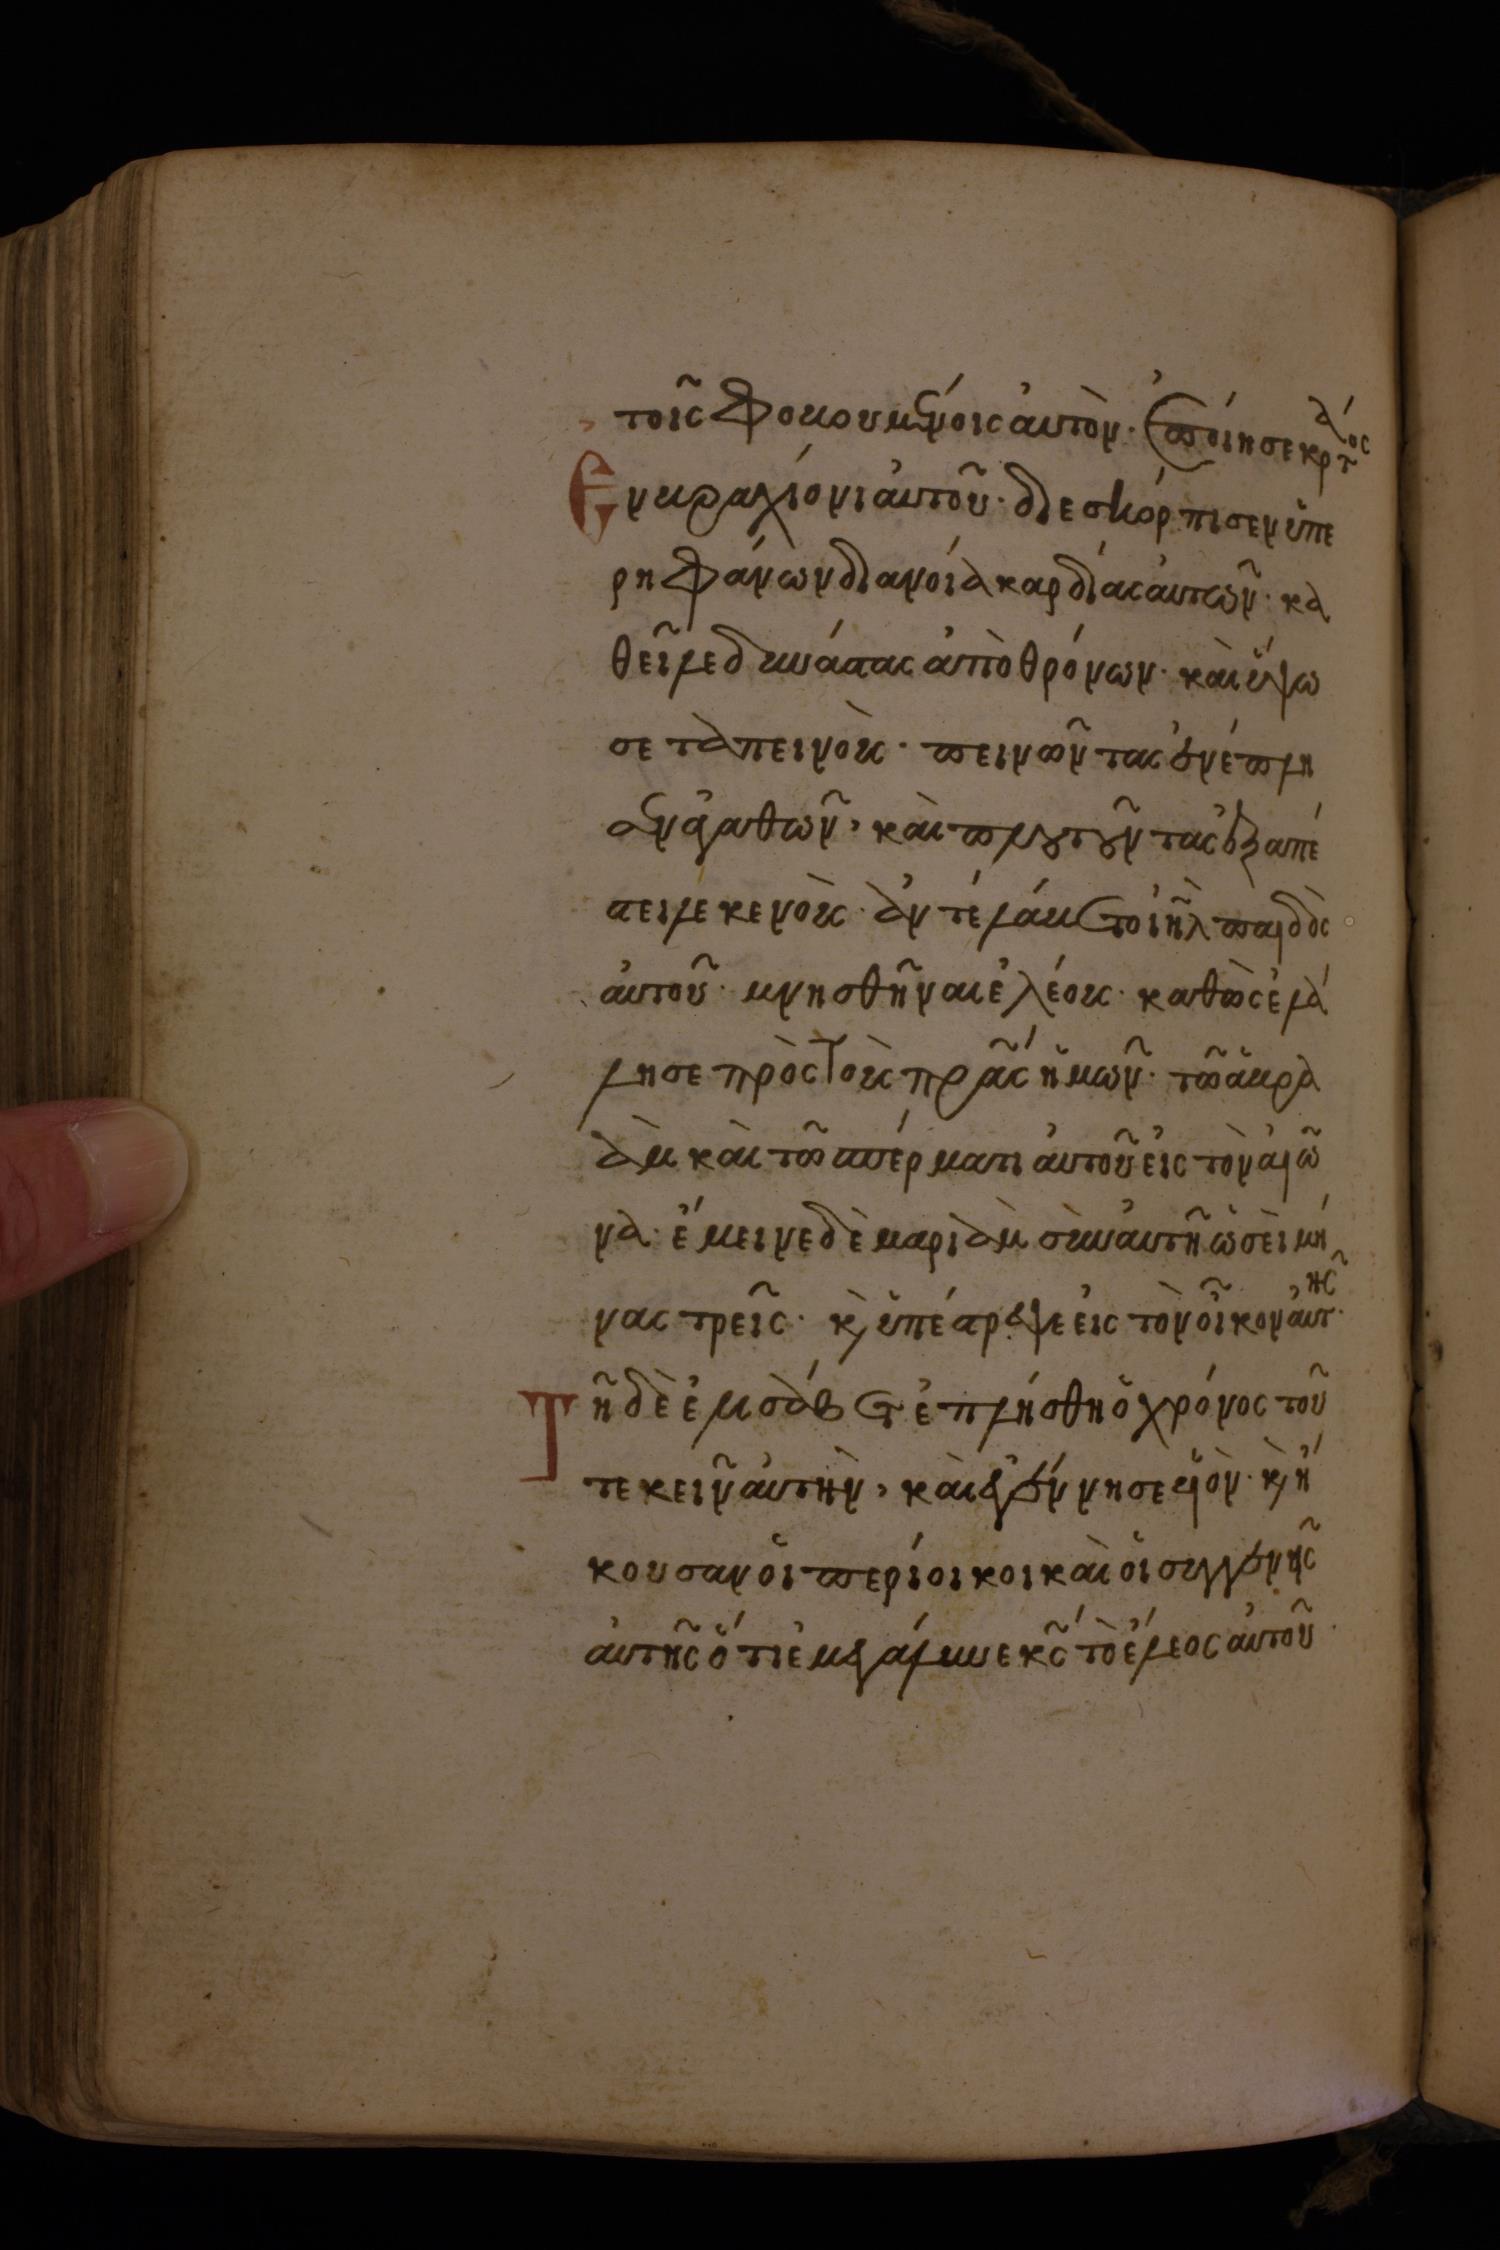 τοῖς φοβουμένοις αὐτὸν· ἐποίησε κράτος
Ἐν βραχίονι αὐτοῦ· διεσκόρπισεν ὑπε
ρηφάνων διανοία καρδίας αὐτῶν· κα
θεῖλε δυνάστας ἀπὸ θρόνων· καὶ ὕψω
σε ταπεινοὺς· πεινῶντας ἐνέπλη
σεν ἀγαθῶν, καὶ πλουτοῦντας ἐξαπέ
στειλε κενοὺς· ἀντελάβετο ἰῆλ παιδὸς
αὐτοῦ· μνησθῆναι ἐλέους· καθὼς ἐλά
λησε πρὸς τοὺς πρας ἡμῶν· τῶ ἀβρα
ὰμ καὶ τῶ σπέρματι αὐτοῦ εἰς τὸν αἰῶ
να· ἔμεινε δὲ μαριὰμ σὺν αὐτῆ ὡσεὶ μῆ
νας τρεῖς· κὶ ὑπέστρεψε εἰς τὸν οἶκον αὐτῆς·
Τῆ δὲ ἐλισάβετ ἐπλήσθη ὁ χρόνος τοῦ
τεκεῖν αὐτὴν, καὶ ἐγέννησεν υἱὸν· κὶ ἤ
κουσαν οἱ περίοικοι καὶ οἱ συγγενῆς
αὐτῆς ὅτι ἐμεγάλυνε κς τὸ ἔλεος αὐτοῦ